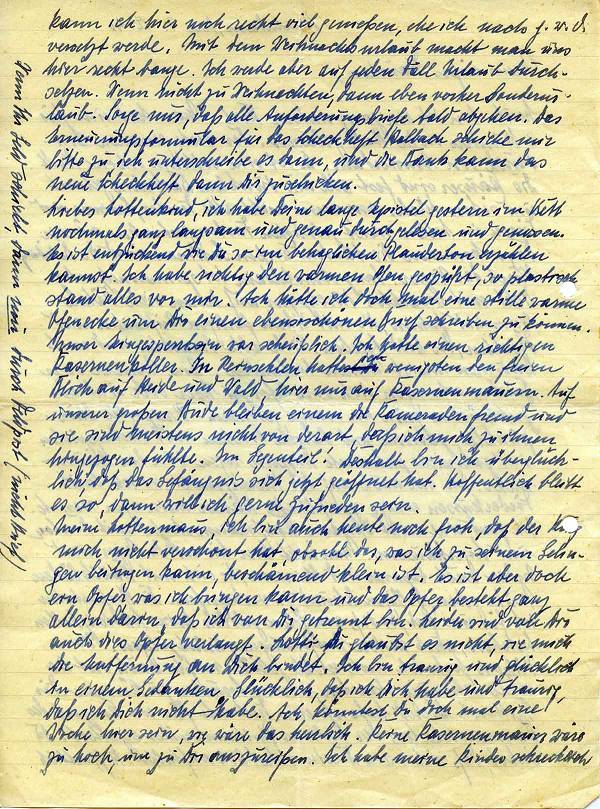 kann ich hier noch recht viel genießen, ehe ich nach g. v. d.
versetzt werde. Mit dem Weihnachtsurlaub macht man uns
hier recht bange. Ich werde aber auf jeden Fall Urlaub durch-
setzen. Wenn nicht zu Weihnachten, dann eben vorher Sonderur-
laub. Sorge nur, daß alle Anforderungsbriefe bald abgehen. Das
Erneuerungsformular für das Scheckheft schicke mir
bitte zu ich unterschreibe es dann, und die Bank kann das
neue Scheckheft dann Dir zuschicken.
Liebes Lottenkind, ich habe Deine lange Epistel gestern im Bett
nochmals ganz langsam und genau durchgelesen und genossen.
Es ist entzückend wie Du so im behaglichen Plauderton erzählen
kannst. Ich habe richtig den warmen Ofen gespürt, so plastisch
stand alles vor mir. Ach hätte ich doch mal eine stille warme
Ofenecke um Dir einen ebensoschönen Brief schreiben zu können.
Unser Eingesperrtsein war scheußlich. Ich hatte einen richtigen
Kasernenkoller. In hatte ich wenigsten den freien
Blick auf Heide und Wald hier nur auf Kasernenmauern. Auf
unserer großen Bude bleiben einem die Kameraden fremd und
sie sind meistens nicht von derart, daß ich mich zu ihnen
hingezogen fühlte. Im Gegenteil! Deshalb bin ich überglück-
lich, daß das Gefängnis sich jetzt geöffnet hat. Hoffentlich bleibt
es so, dann will ich gerne zufrieden sein.
Meine Lottenmaus, ich bin auch heute noch froh, daß der Krieg
mich nicht verschont hat, obwohl das, was ich zu seinem Gelin-
gen beitragen kann, beschämend klein ist. Es ist aber doch
ein Opfer was ich bringen kann und das Opfer besteht ganz
allein darin, daß ich von Dir getrennt bin. Leider wird von Dir
auch dies Opfer verlangt. Lotti Du glaubst es nicht, wie mich
die Entfernung an Dich bindet. Ich bin traurig und glücklich
in einem Gedanken, Glücklich, daß ich Dich habe und traurig,
daß ich Dich nicht habe. Ach, könntest Du doch mal eine
Woche hier sein, wie wäre das herrlich. Keine Kasernenmauer wäre
zu hoch, um zu Dir auszureißen. Ich habe meine Kinder schrecklich
Wenn Ihr Geld schickt, dann nur durch Feldpost (nicht Brief)